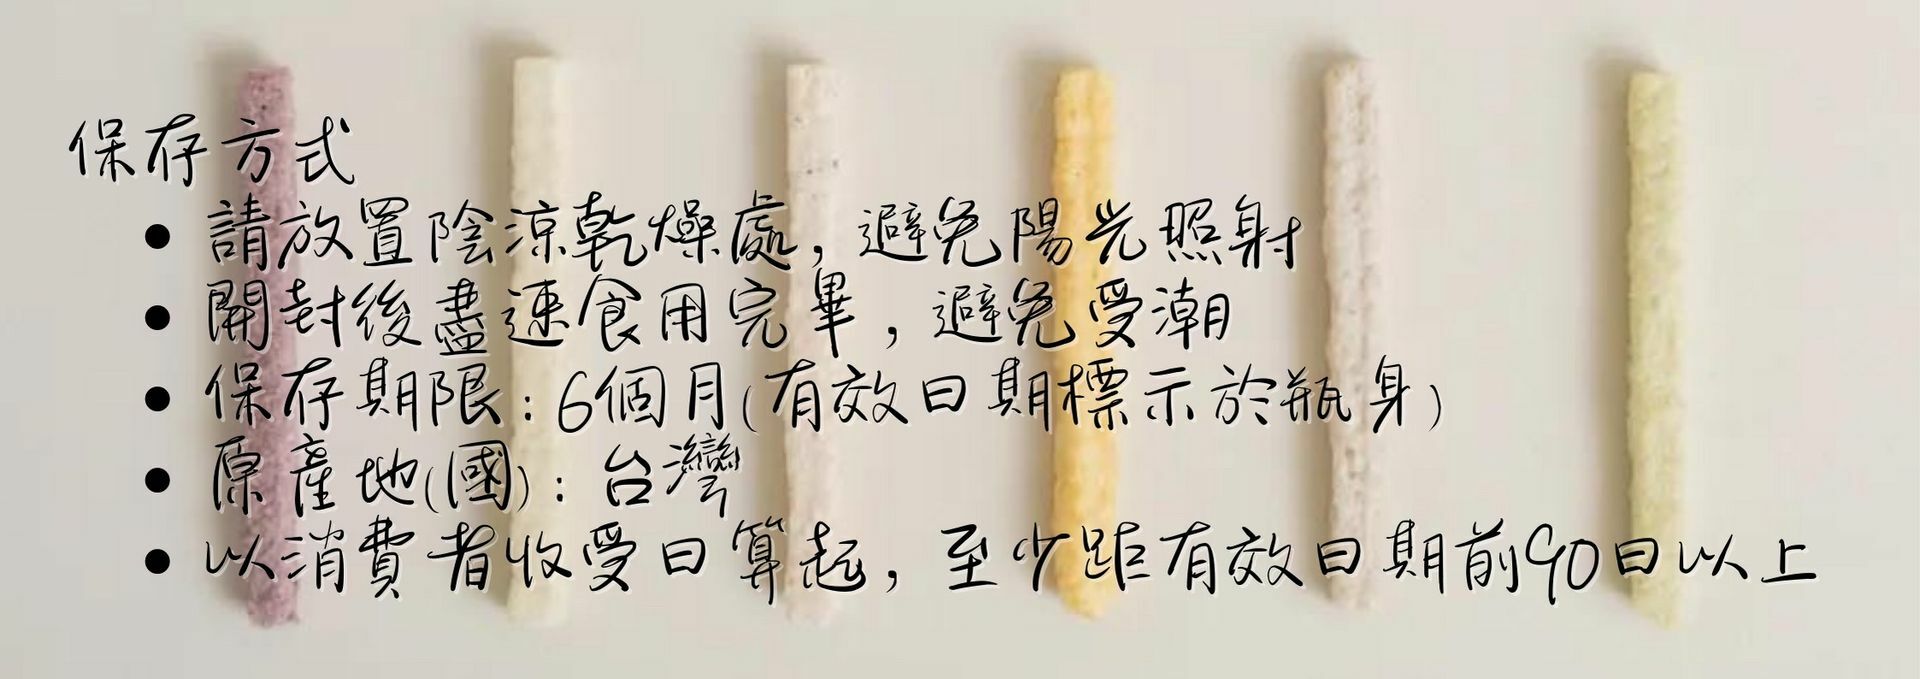 保存方式
• 請放置陰涼乾燥處，避免陽光照射
• 開封後盡速食用完畢，避免受潮
• 保存期限：6個月(有效日期標示於瓶身)
• 原產地(國)：台灣
• 以消費者收受日算起，至少距有效日期前90日以上